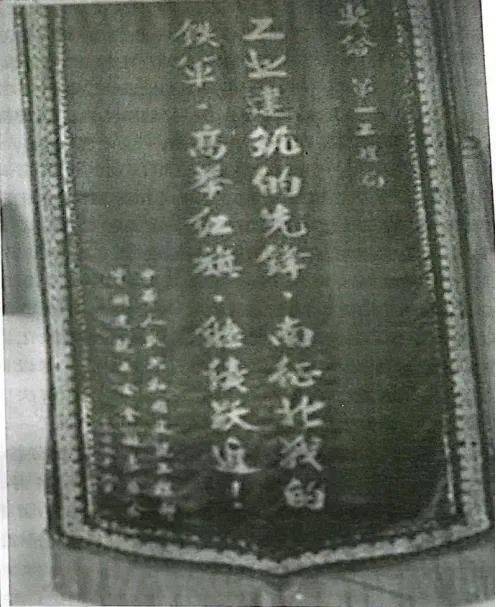 奖给 第一工程局
工业建筑的先锋，南征北战的
铁军，高举红旗，继续跃进！
中华人民共和国建筑工程部